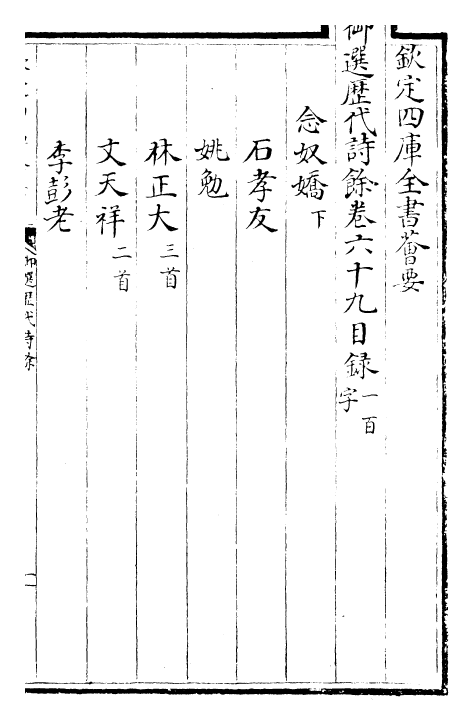 欽定四庫全書薈要
御選歷代詩餘卷六十九目録 一百字
念奴嬌 下
石孝友
姚勉
林正大 三首
文天祥 二首
李彭老
御選歷代詩餘